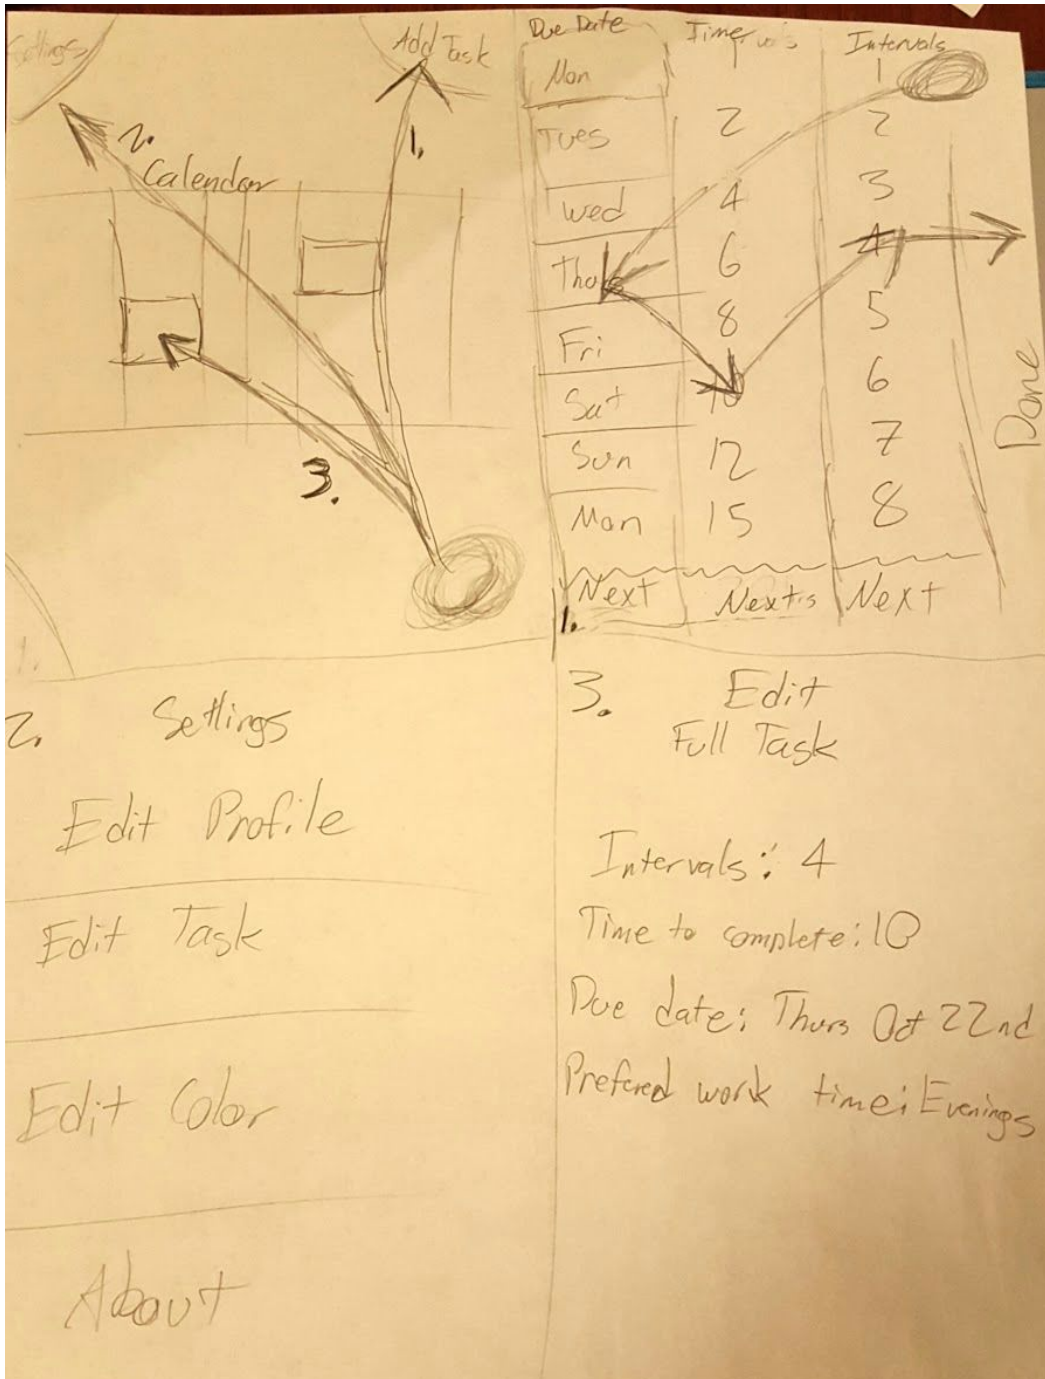 Settings
Add Task
2.
1.
Calendar
3.
1.
Due Date Time Intervals
Mon 1 1
Tues 2 2
Wed 4 3
Thurs 6 4
Fri 8 5
Sat 10 6
Sun 12 7
Mon 15 8
Next Next Next
Done
1.
2. Settings
Edit Profile
Edit Task
Edit Color
About
3. Edit
Full Task
Intervals: 4
Time to complete: 10
Due date: Thurs Oct 22nd
Prefered work time: Evenings